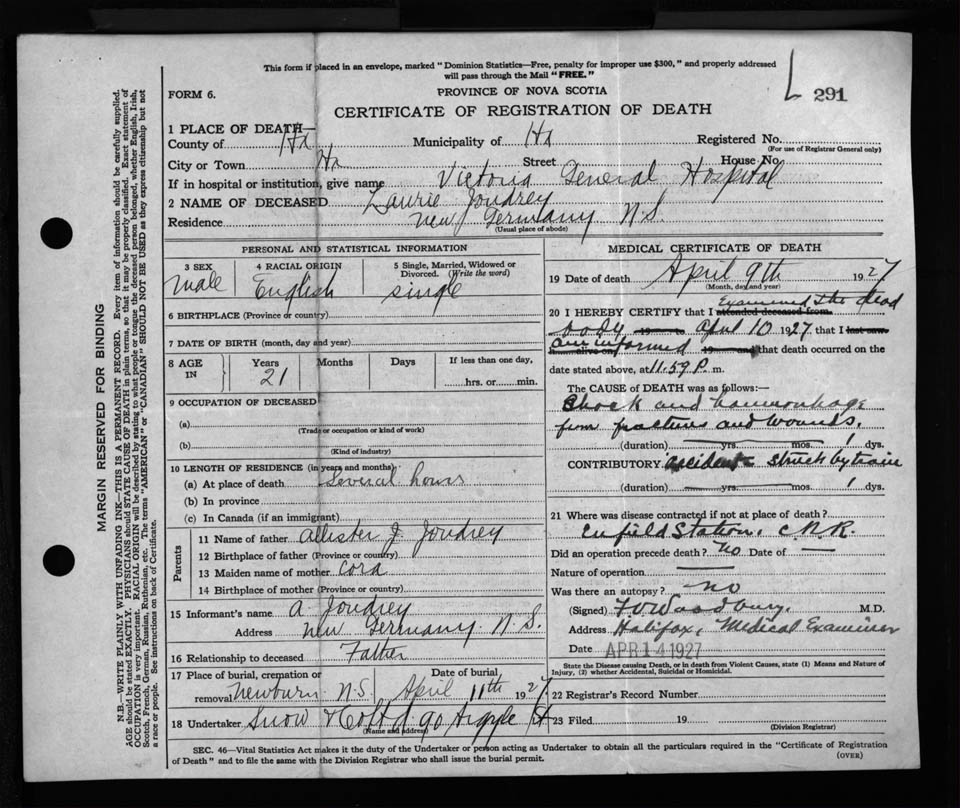 This form if placed in an envelope, marked "Dominion Statistics—Free, penalty for improper use $300," and properly addressed
will pass through the Mail "FREE."
L 291
FORM 6.
PROVINCE OF NOVA SCOTIA
CERTIFICATE OF REGISTRATION OF DEATH
1 PLACE OF DEATH—
County of Hx Municipality of Hx Registered No.
(For use of Registrar General only)
City or Town Hx Street House No.
If in hospital or institution, give name Victoria General Hospital
2 NAME OF DECEASED Laurie Joudrey
Residence New Germany N.S.
(Usual place of abode)
PERSONAL AND STATISTICAL INFORMATION
3 SEX 4 RACIAL ORIGIN 5 Single, Married, Widowed or
Divorced. (Write the word)
Male English single
6 BIRTHPLACE (Province or country)
7 DATE OF BIRTH (month, day and year)
8 AGE IN Years Months Days If less than one day,
21 hrs. or min.
9 OCCUPATION OF DECEASED
(a)
(Trade or occupation or kind of work)
(b)
(Kind of industry)
10 LENGTH OF RESIDENCE (in years and months)
(a) At place of death Several hours
(b) In province
(c) In Canada (if an immigrant)
Parents
11 Name of father Allister J. Joudrey
12 Birthplace of father (Province or country)
13 Maiden name of mother Cora
14 Birthplace of mother (Province or country)
15 Informant's name A Joudrey
Address New Germany N.S.
16 Relationship to deceased Father
17 Place of burial, cremation or Date of burial,
removal Newburn N.S. April 11th 1927
18 Undertaker Snow & Co Ltd 90 Argyle St
(Name and address)
MEDICAL CERTIFICATE OF DEATH
19 Date of death April 9th 1927
(Month, day and year)
20 I HEREBY CERTIFY that I attended deceased from Examined the dead
body 19 April 10 1927 that I last saw
am informed 19 and that death occurred on the
date stated above, at 11.59 P. m.
The CAUSE of DEATH was as follows:—
Shock and haemorrhage
from fractures and wounds.
(duration) yrs. mos. 1 dys.
CONTRIBUTORY accident struck by train
(duration) yrs. mos. 1 dys.
21 Where was disease contracted if not at place of death?
Enfield Station, C.N.R.
Did an operation precede death? No Date of —
Nature of operation —
Was there an autopsy? No
(Signed) Woodbury, M.D.
Address Halifax, Medical Examiner
Date APR 14 1927
State the Disease causing Death, or in death from Violent Causes, state (1) Means and Nature of
Injury, (2) whether Accidental, Suicidal or Homicidal.
22 Registrar's Record Number
23 Filed 19
(Division Registrar)
SEC. 46—Vital Statistics Act makes it the duty of the Undertaker or person acting as Undertaker to obtain all the particulars required in the "Certificate of Registration
of Death" and to file the same with the Division Registrar who shall issue the burial permit. (OVER)
MARGIN RESERVED FOR BINDING
N.B.—WRITE PLAINLY WITH UNFADING INK—THIS IS A PERMANENT RECORD. Every item of information should be carefully supplied.
AGE should be stated EXACTLY. PHYSICIANS should STATE CAUSE OF DEATH in plain terms, so that it may be properly classified. Exact statement of
OCCUPATION is very important. RACIAL ORIGIN will be described by stating to what people or tongue the deceased person belonged, whether English, Irish,
Scotch, French, German, Russian, Ruthenian, etc. The terms "AMERICAN" or "CANADIAN" SHOULD NOT BE USED as they express citizenship but not
a race or people. See instructions on back of Certificate.